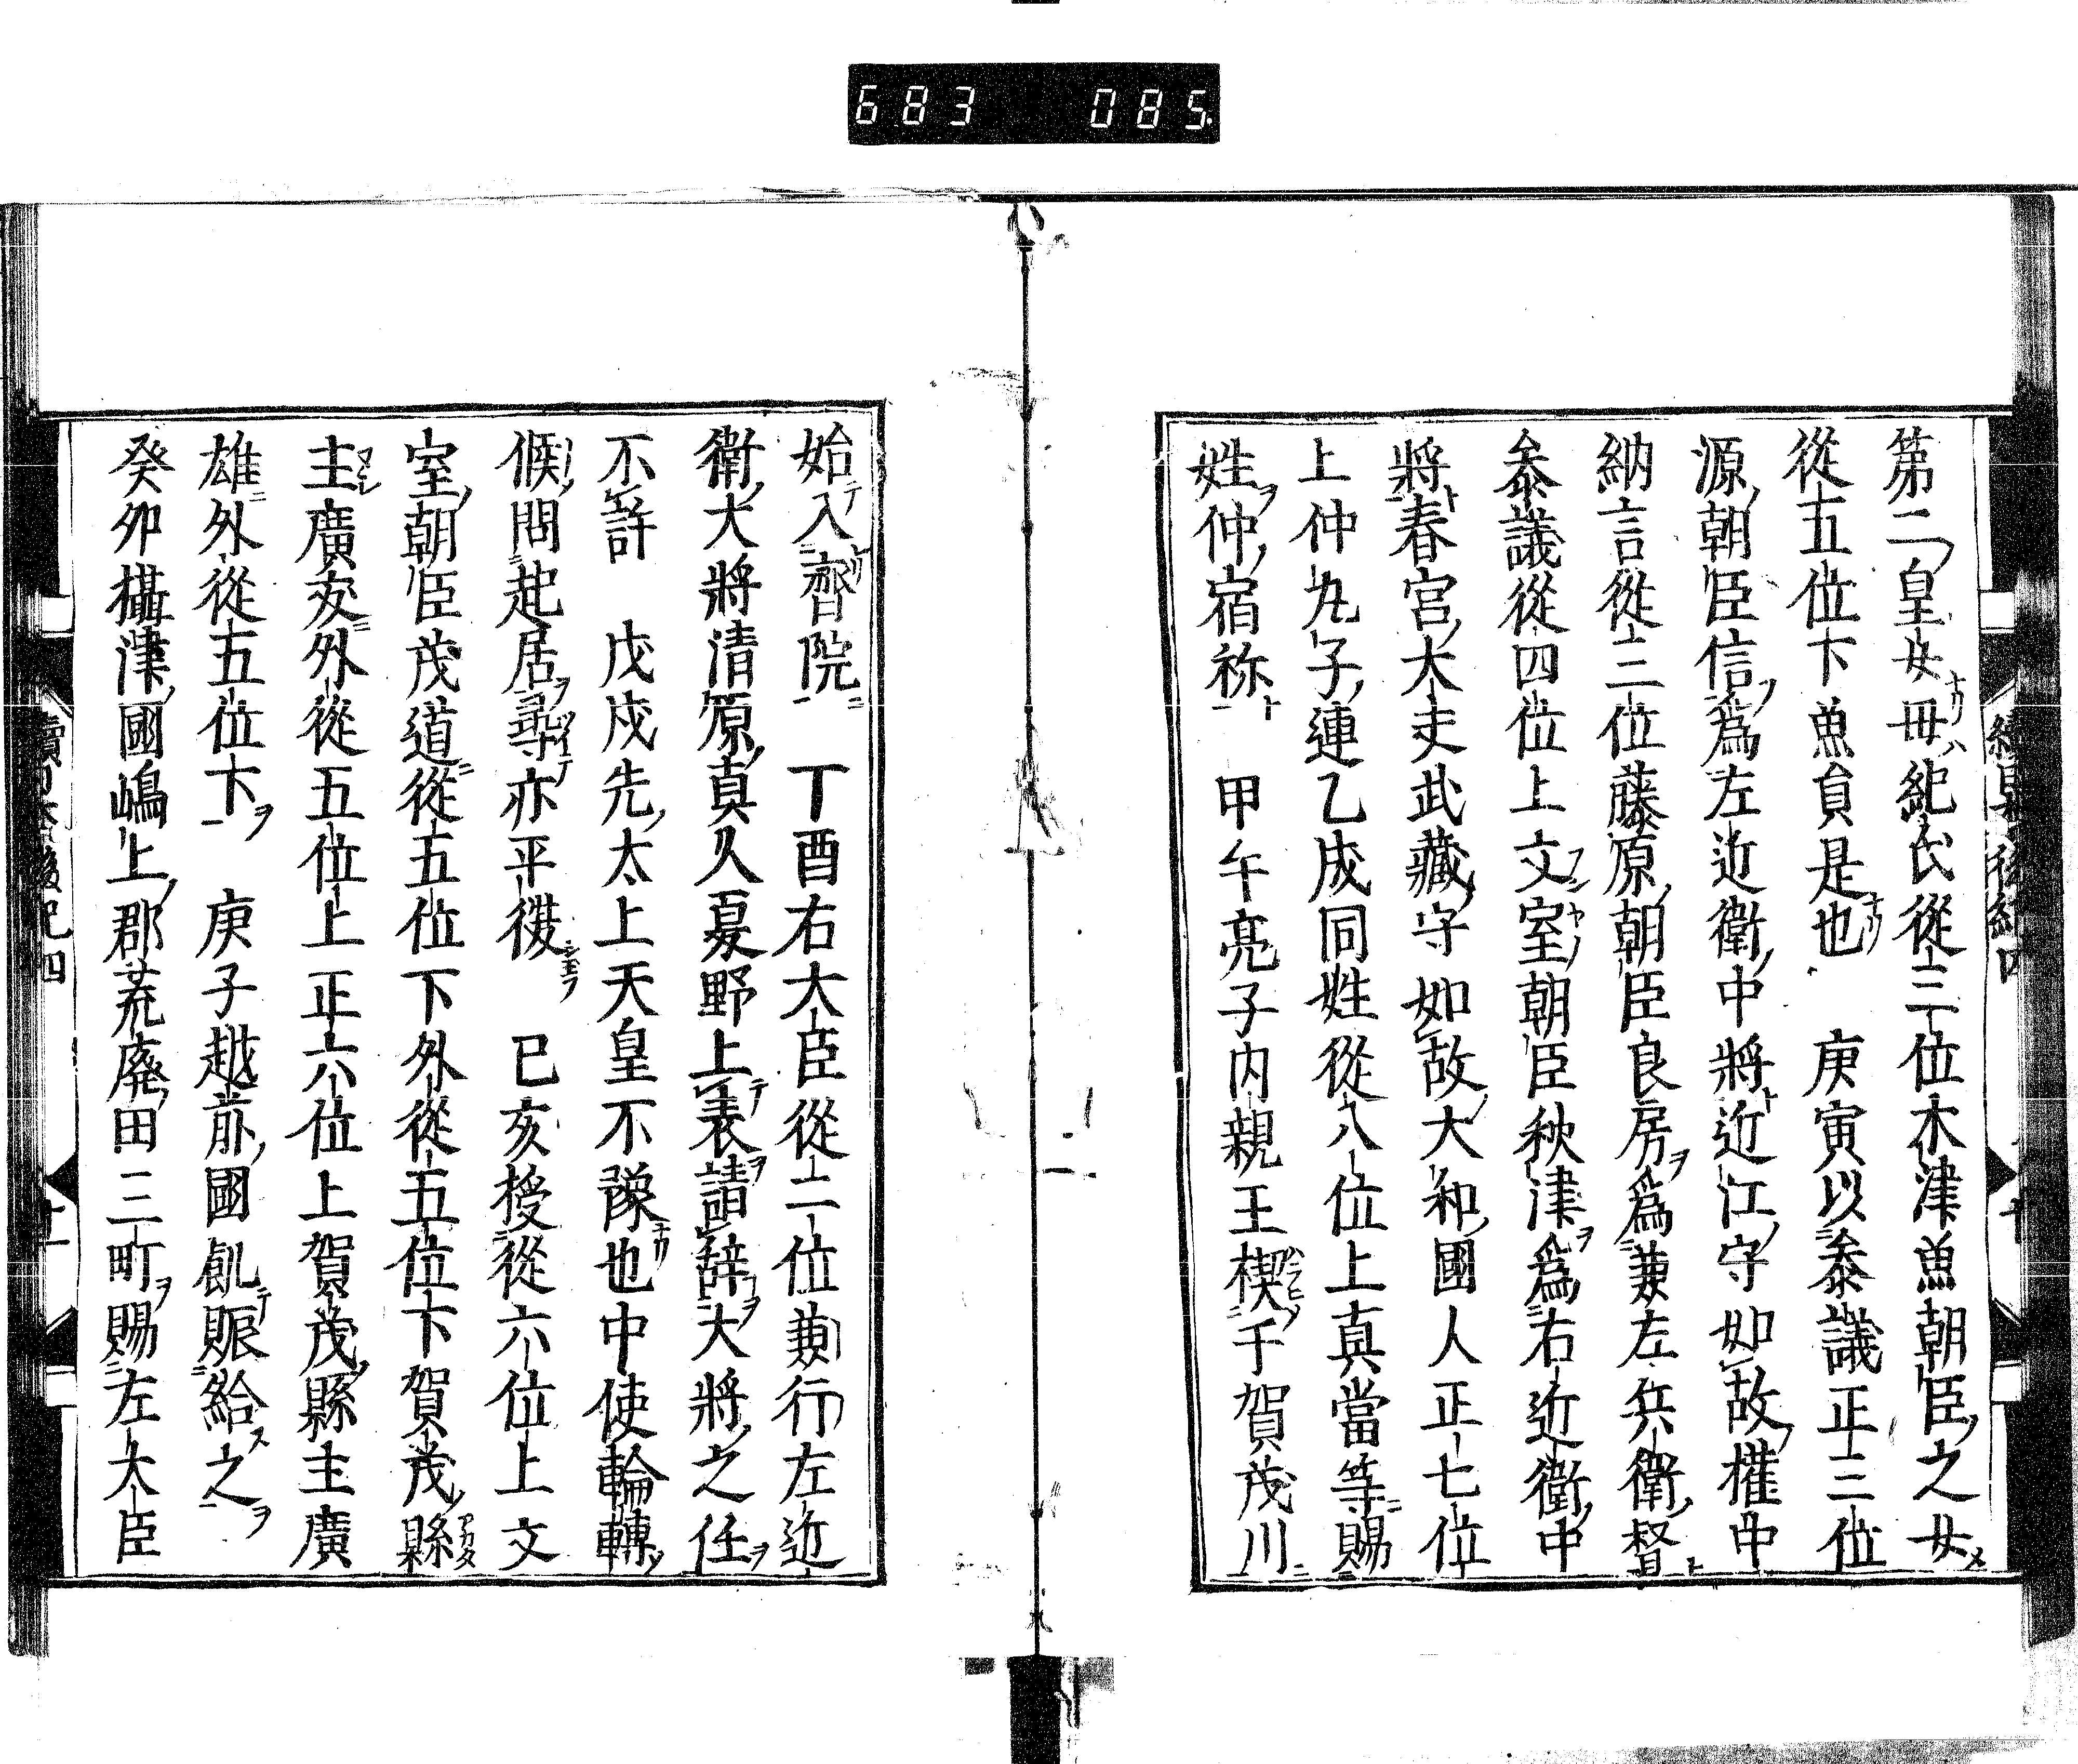 683 085
第二皇女母紀氏從三位木津魚朝臣之女
從五位下魚員是也 庚寅以參議正三位
源朝臣信爲左近衛中將近江守如故權中
納言從三位藤原朝臣良房爲兼左兵衛督
參議從四位上文室朝臣秋津爲右近衛中
將春宮大夫武藏守如故大和國人正七位
上仲丸子連乙成同姓從八位上眞當等賜
姓仲宿祢 甲午亮子内親王禊于賀茂川
始入齊院 丁酉右大臣從二位兼行左近
衛大將清原眞人夏野上表請辞大將之任
不許 戊戌先太上天皇不豫也中使輪轉
候問起居尋亦平復 己亥授從六位上文
室朝臣茂道從五位下外從五位下賀茂縣
主廣友外從五位上正六位上賀茂縣主廣
雄外從五位下 庚子越前國飢賑給之
癸卯攝津國嶋上郡荒廢田三町賜左大臣
續日本後紀四